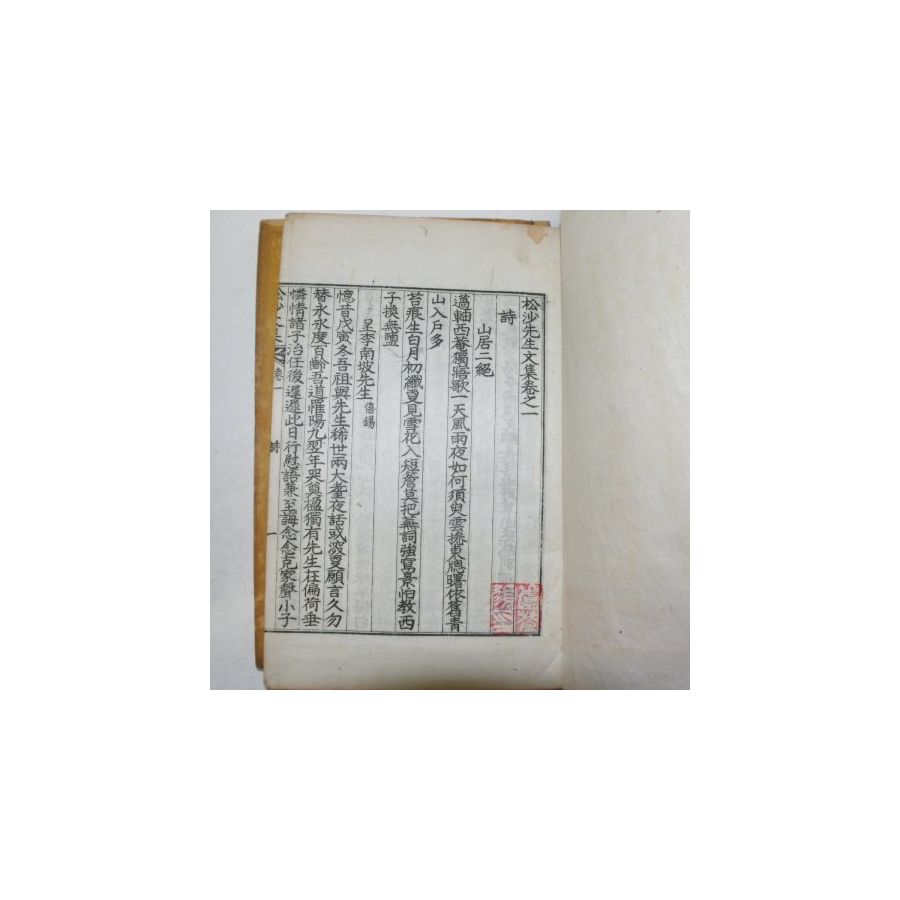 松沙先生文集卷之一
詩
山居二絕
薖軸西菴獨寤歌一天風雨夜如何須臾雲捲東牕曙依舊青
山入戶多
苔痕生白月初纖更見雪花入短簷莫把蕪詞強寫景怕教西
子換無鹽
呈李南坡先生 僖錫
憶昔戊寅冬吾祖與先生稀世兩大耋夜話或深更願言久勿
替永永度百齡吾道罹陽九翌年哭奠楹獨有先生在偏荷垂
憐情諸子治任後遲遲此日行慰語兼至誨念念克家聲小子
松沙文集 卷一 詩 一